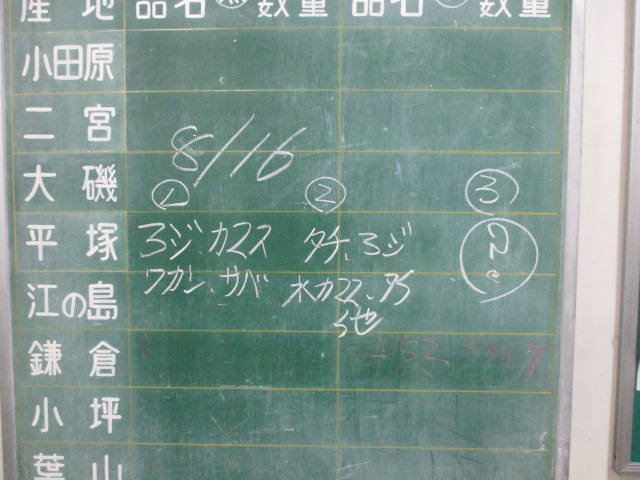 産地 品名 数量 品名 数量
小田原
二宮
8/16
大磯
① ② ③
平塚 ろジ、カマス タチ、ろジ
江の島 ワカシ、サバ 水カマス、
他
鎌倉
152
小坪
葉山